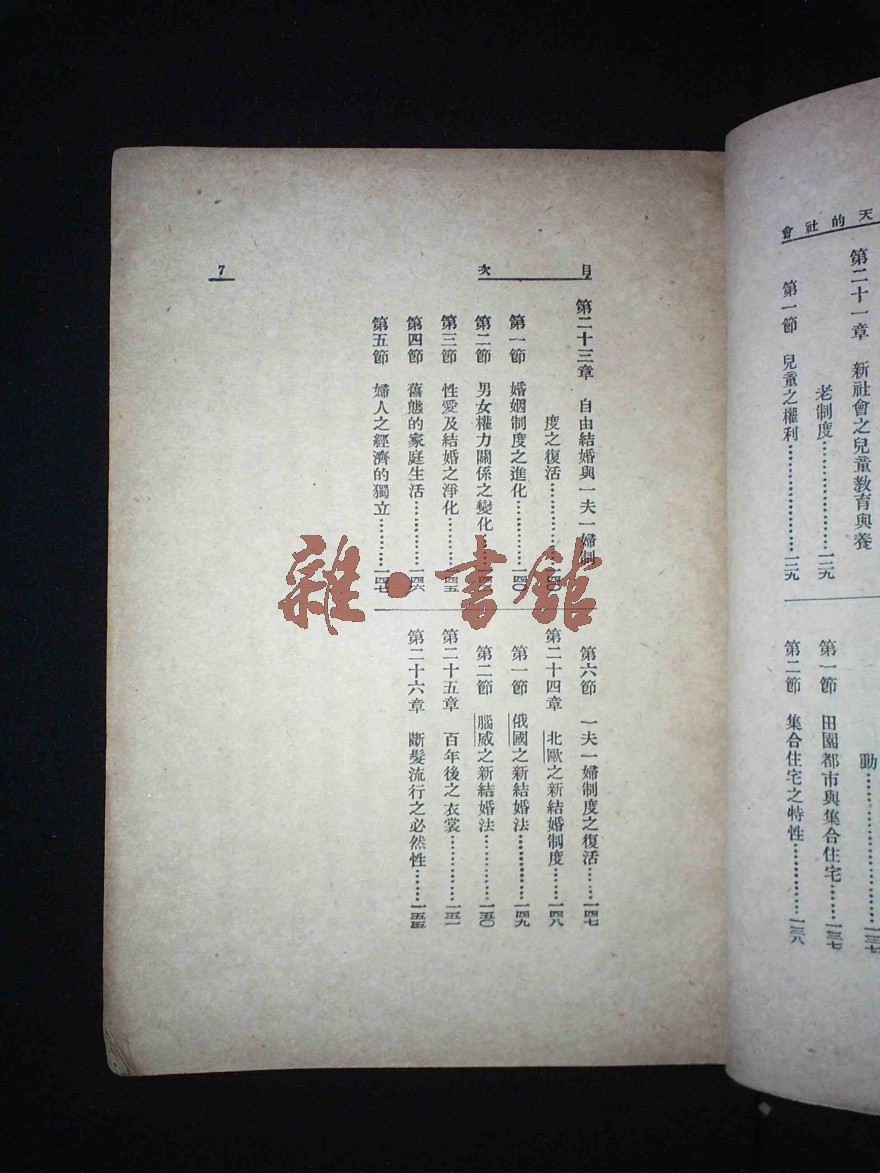 天的社會
第二十一章 新社會之兒童教育與養
老制度……………一二九
第一節 兒童之權利……………一二九
動……………一三七
第一節 田園都市與集合住宅……一三七
第二節 集合住宅之特性…………一三八
目次
7
第二十三章 自由結婚與一夫一婦制
度之復活……………一四〇
第一節 婚姻制度之進化…………一四〇
第二節 男女權力關係之變化……
第三節 性愛及結婚之淨化………一四五
第四節 舊態的家庭生活…………一四六
第五節 婦人之經濟的獨立………一四七
第六節 一夫一婦制度之復活……一四七
第二十四章 北歐之新結婚制度……一四八
第一節 俄國之新結婚法…………一四九
第二節 腦威之新結婚法…………一五〇
第二十五章 百年後之衣裳…………一五一
第二十六章 斷髮流行之必然性……一五五
雜·書館